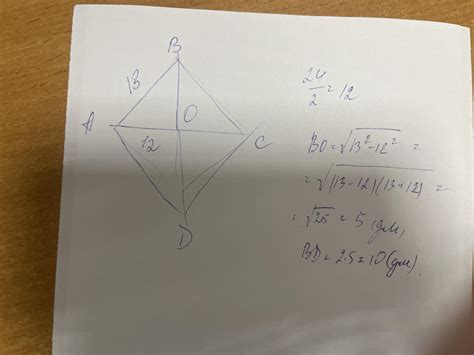 B
13
O
A
12
C
D
24/2 = 12
BO = √(13² - 12²) =
= √((13 - 12)(13 + 12)) =
= √25 = 5 (дм)
BD = 2·5 = 10 (дм).